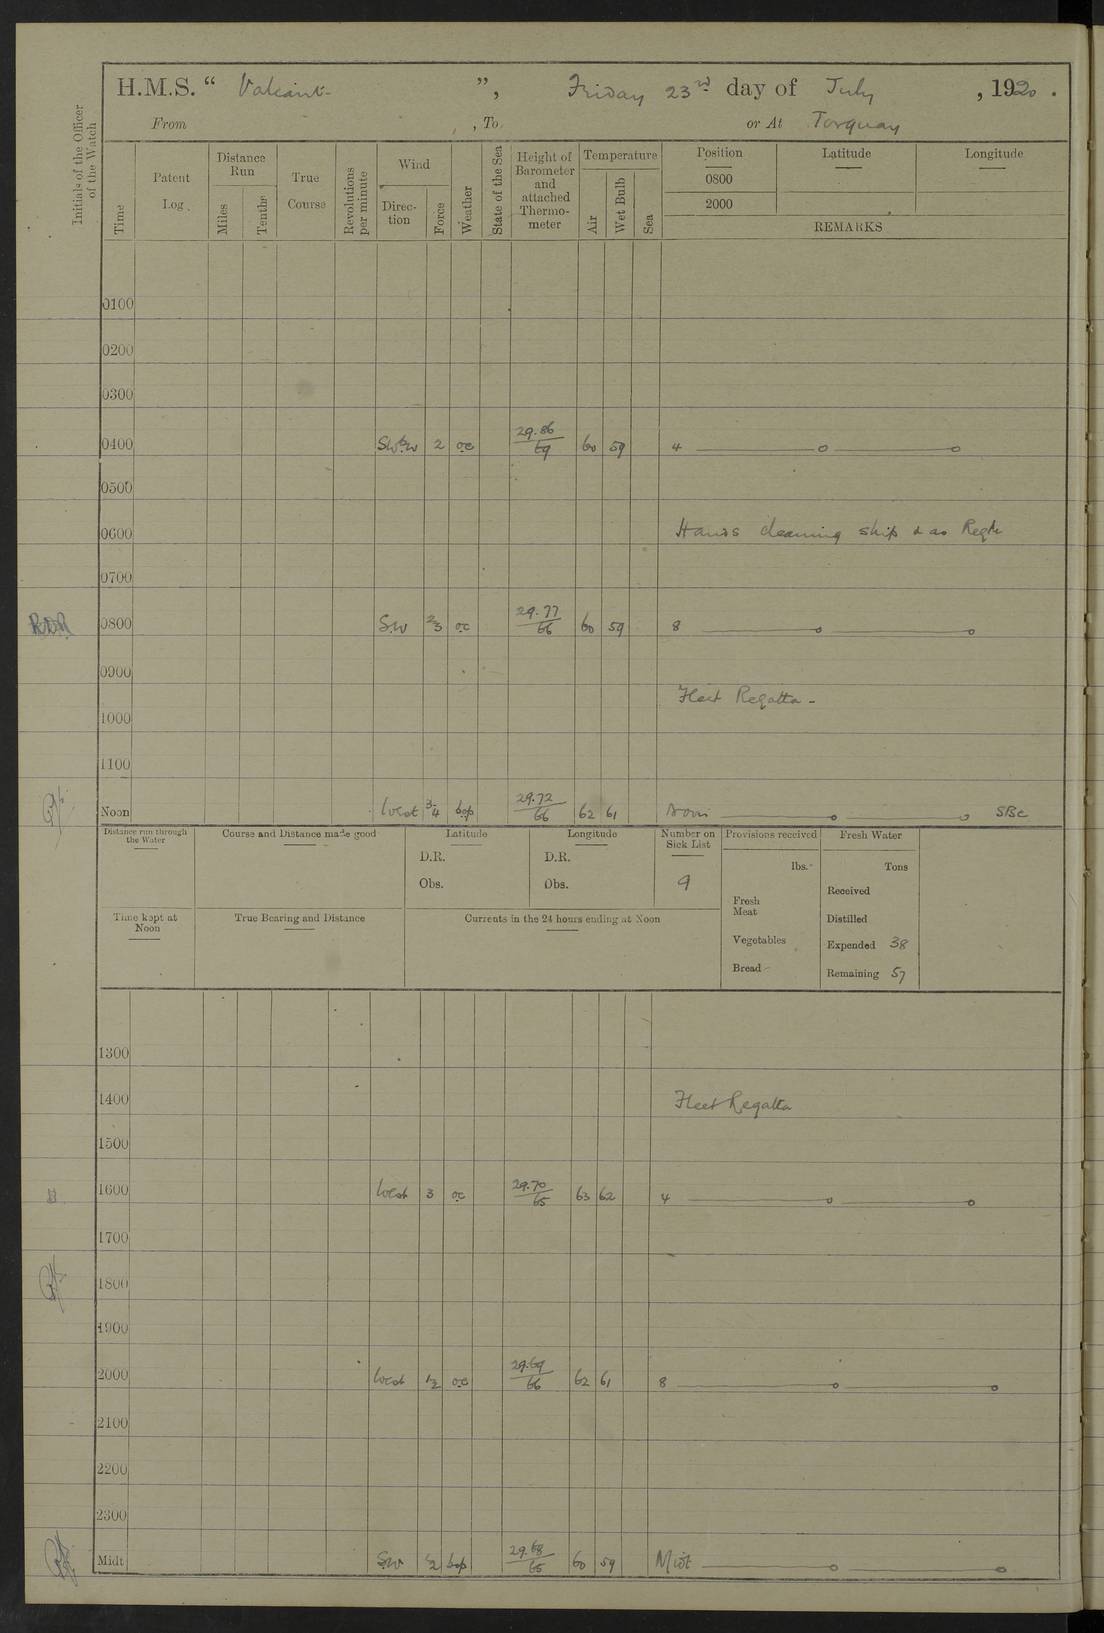 H.M.S. " Valiant ", Friday 23rd day of July, 1920.
From , To or At Torquay
Initials of the Officer of the Watch
Time
Patent Log.
Distance Run
Miles
Tenths
True Course
Revolutions per minute
Wind
Direction
Force
Weather
State of the Sea
Height of Barometer and attached Thermometer
Temperature
Air
Wet Bulb
Sea
Position Latitude Longitude
0800
2000
REMARKS
0100
0200
0300
0400 SWbW 2 oc 29.86/69 60 59 4
0500
0600 Hands cleaning ship & as Reqte
0700
0800 SW 2/3 oc 29.77/66 60 59 8
0900
Fleet Regatta -
1000
1100
Noon West 3-4 bcp 29.72/66 62 61 Noon SBC
Distance run through the Water
Course and Distance made good
Latitude
D.R.
Obs.
Longitude
D.R.
Obs.
Number on Sick List
9
Provisions received
lbs.
Fresh Meat
Vegetables
Bread
Fresh Water
Tons
Received
Distilled
Expended 38
Remaining 57
Time kept at Noon
True Bearing and Distance
Currents in the 24 hours ending at Noon
1300
1400 Fleet Regatta
1500
1600 West 3 oc 29.70/65 63 62 4
1700
1800
1900
2000 West 1/2 oc 29.69/66 62 61 8
2100
2200
2300
Midt SW 1/2 bcp 29.68/65 60 59 Midt